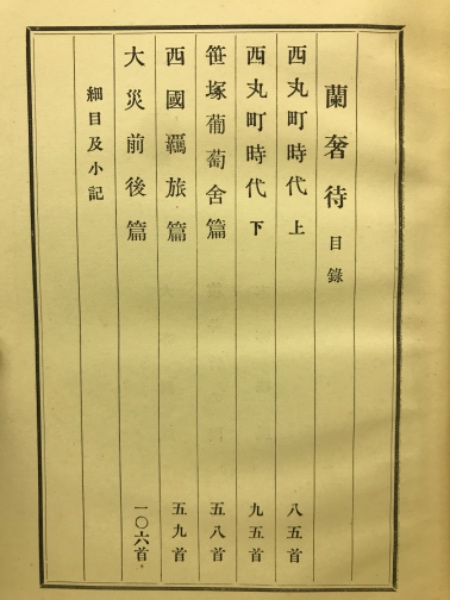 蘭奢待 目錄
西丸町時代 上 八五首
西丸町時代 下 九五首
笹塚葡萄舍篇 五八首
西國羈旅篇 五九首
大災前後篇 一〇六首
細目及小記